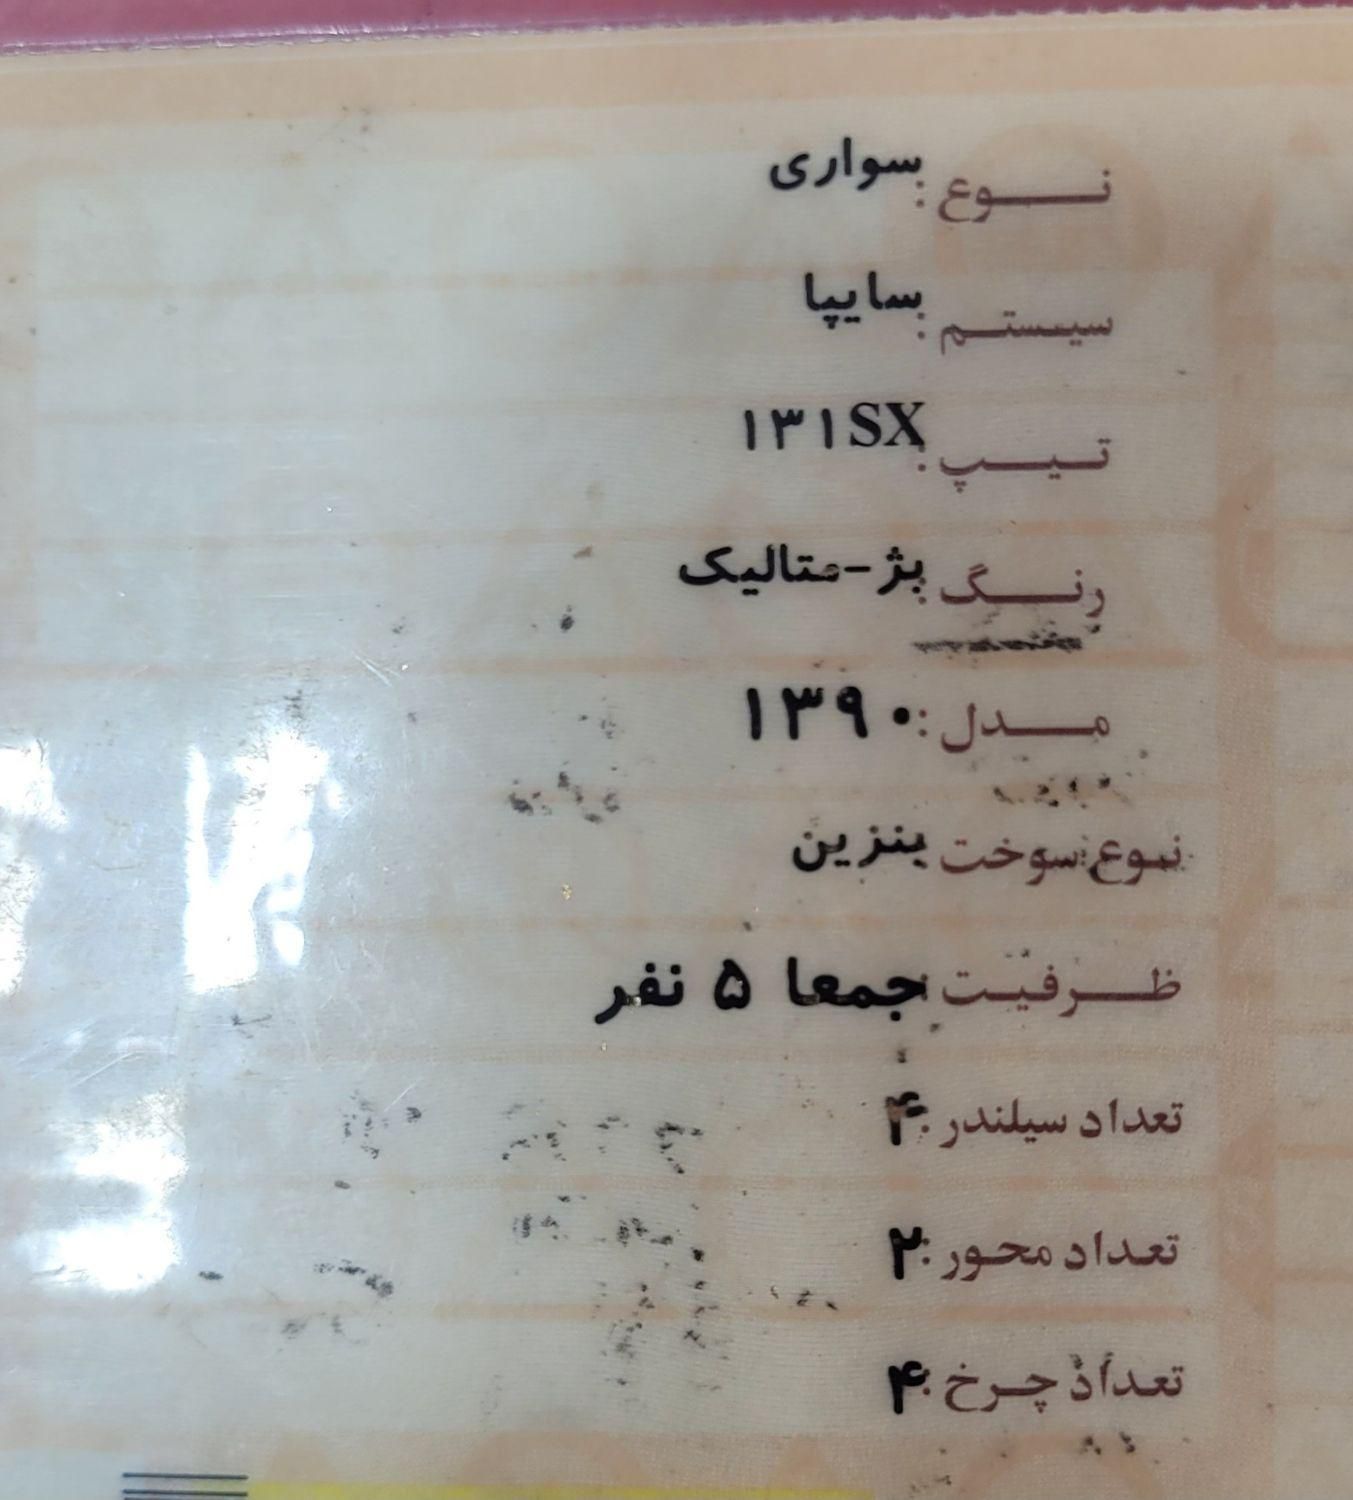 نوع: سواری
سیستم: سایپا
تیپ: ۱۳۱SX
رنگ: بژ-متالیک
مدل: ۱۳۹۰
نوع سوخت: بنزین
ظرفیت: جمعا ۵ نفر
تعداد سیلندر: ۴
تعداد محور: ۲
تعداد چرخ: ۴